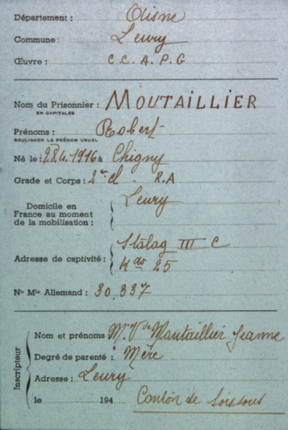 Département : Aisne
Commune : Leury
Œuvre : C. C. A. P. G
Nom du Prisonnier : MOUTAILLIER
EN CAPITALES
Prénoms : Robert
SOULIGNER LE PRÉNOM USUEL
Né le : 28.4.1916 à Chigny
Grade et Corps : 2e cl. R.A
Domicile en
France au moment
de la mobilisation : Leury
Adresse de captivité : Stalag III C
4 25
No Mle Allemand : 30.337
Inscripteur
Nom et prénoms Me Vve Moutaillier Jeanne
Degré de parenté : Mère
Adresse : Leury
le 194
Canton de Soissons